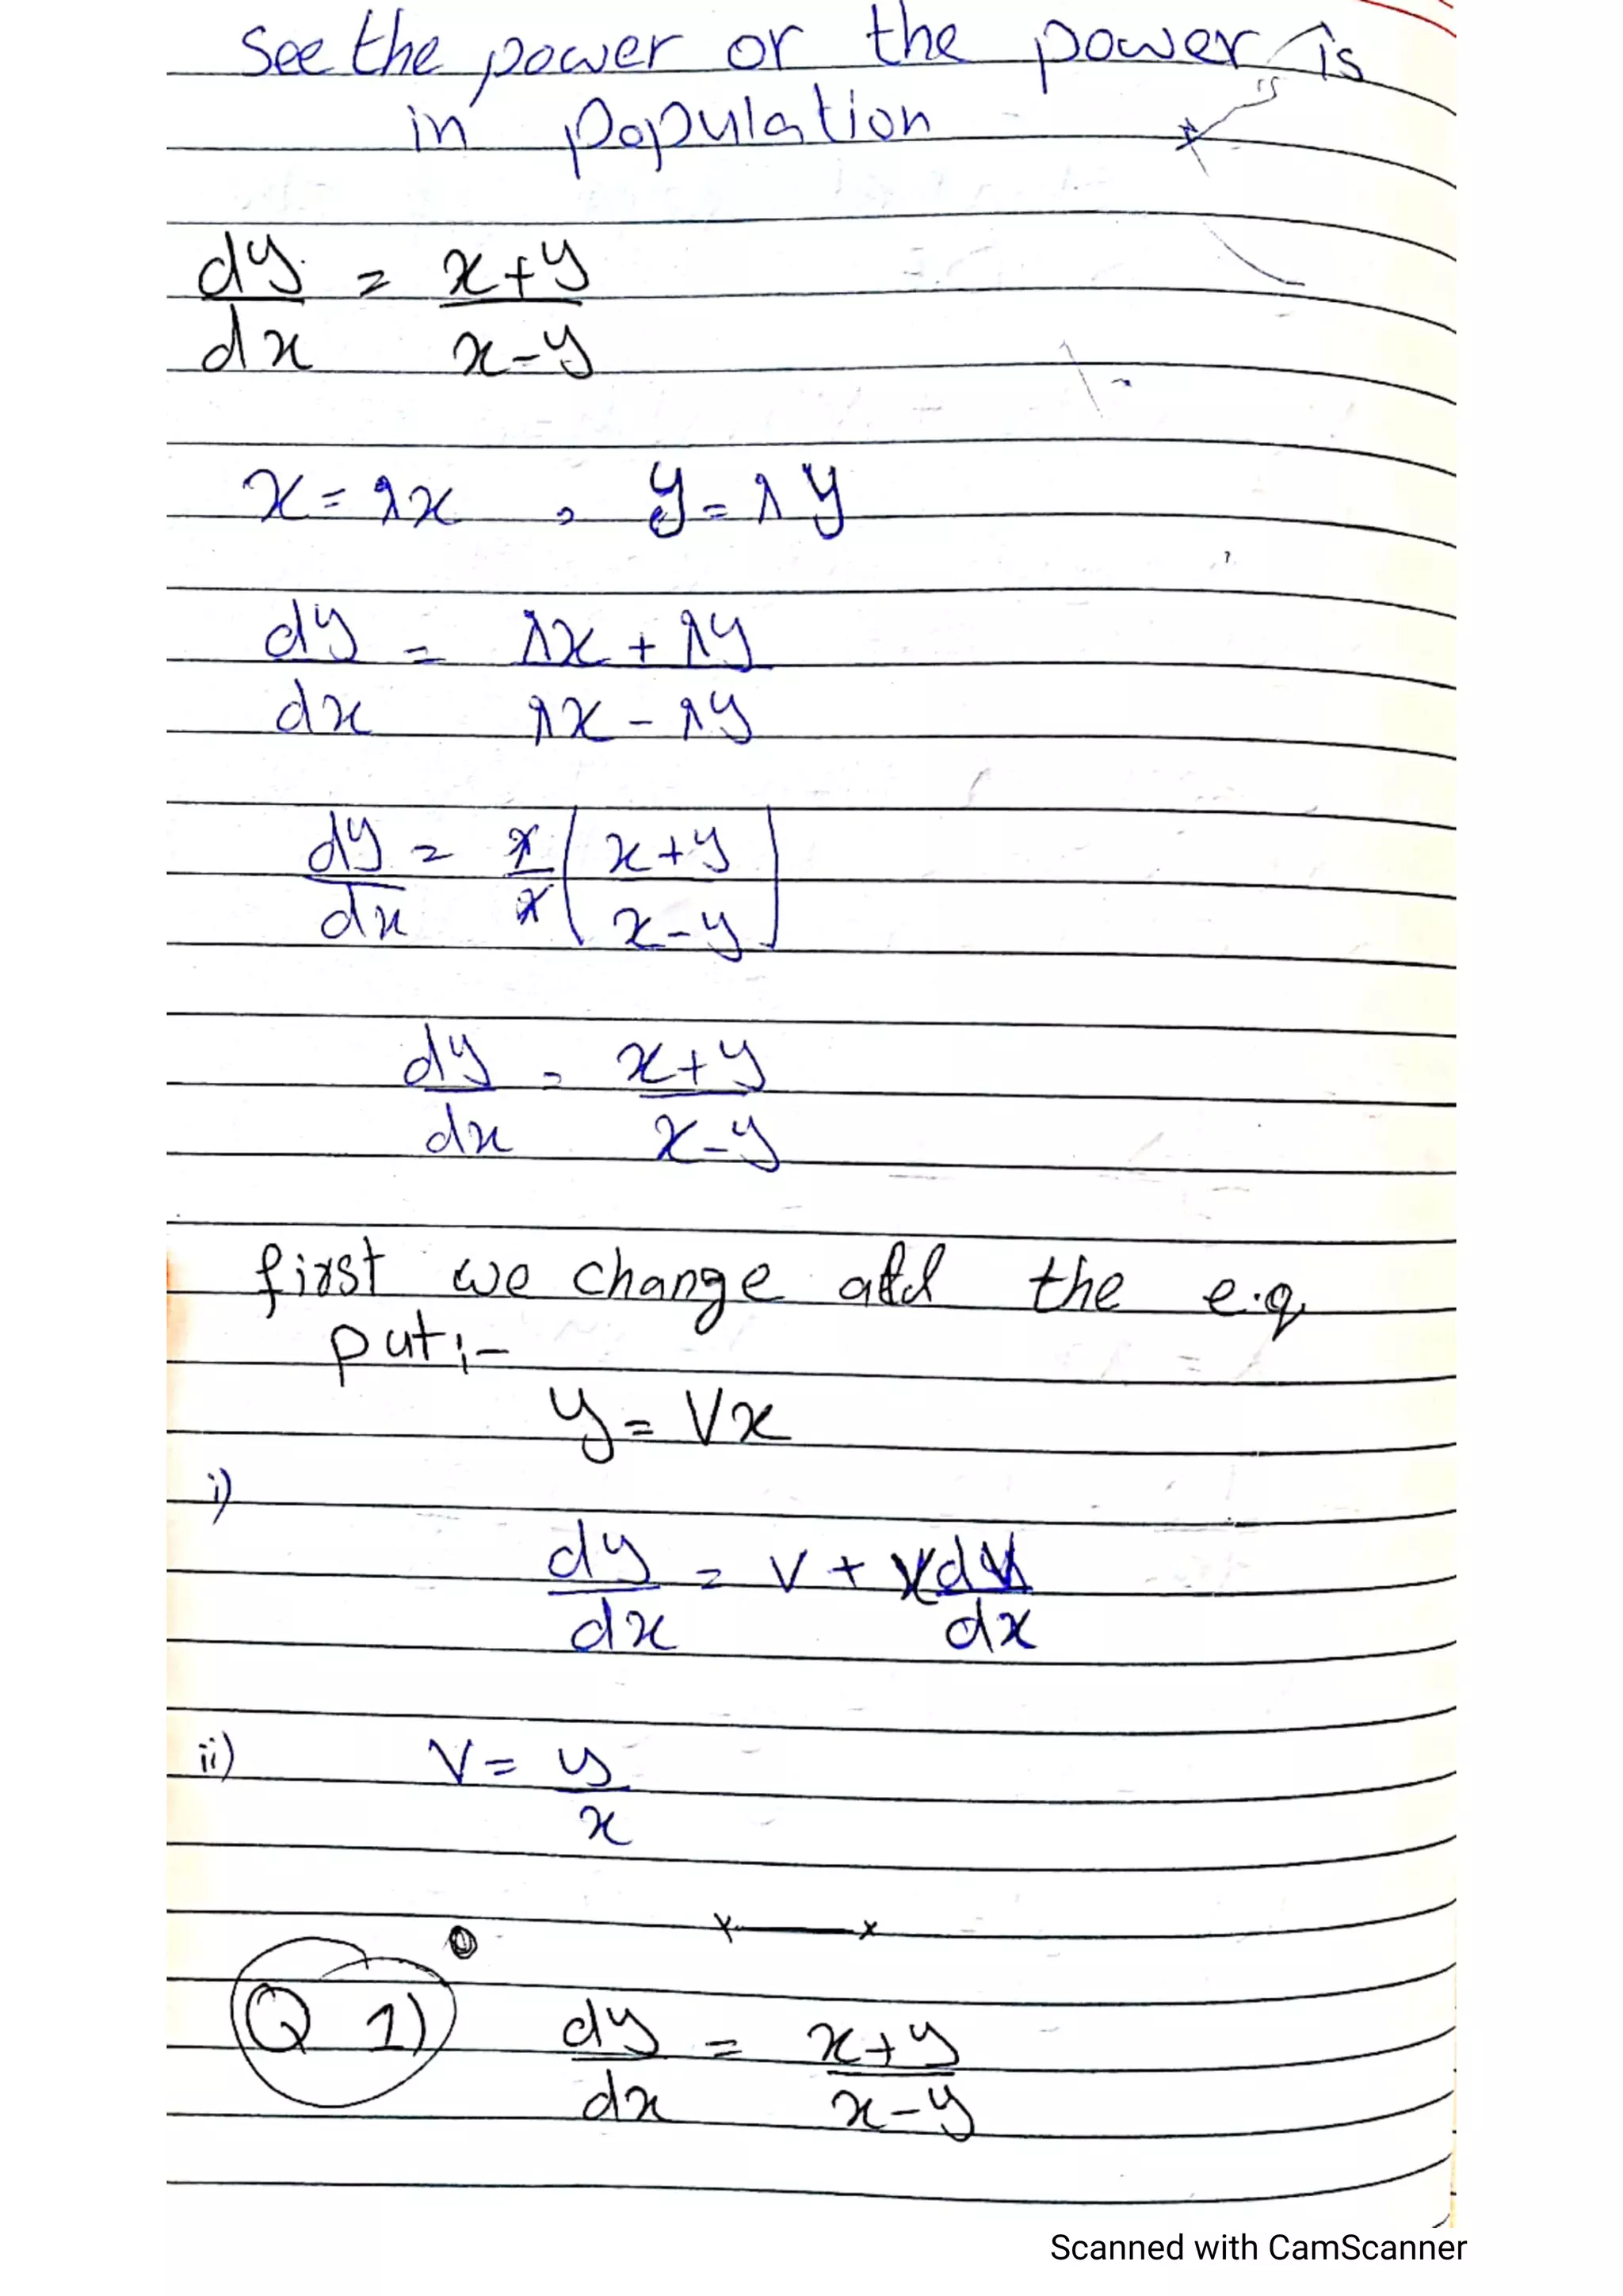 see the power or the power is
is
in population
dy/dx = x+y/x-y
x = λx , y = λy
dy/dx = λx + λy/λx - λy
dy/dx = λ/λ (x+y/x-y)
dy/dx = x+y/x-y
first we change add the e.q
put:-
y = Vx
i)
dy/dx = V + x dv/dx
ii) V = y/x
Q 1) dy/dx = x+y/x-y
Scanned with CamScanner